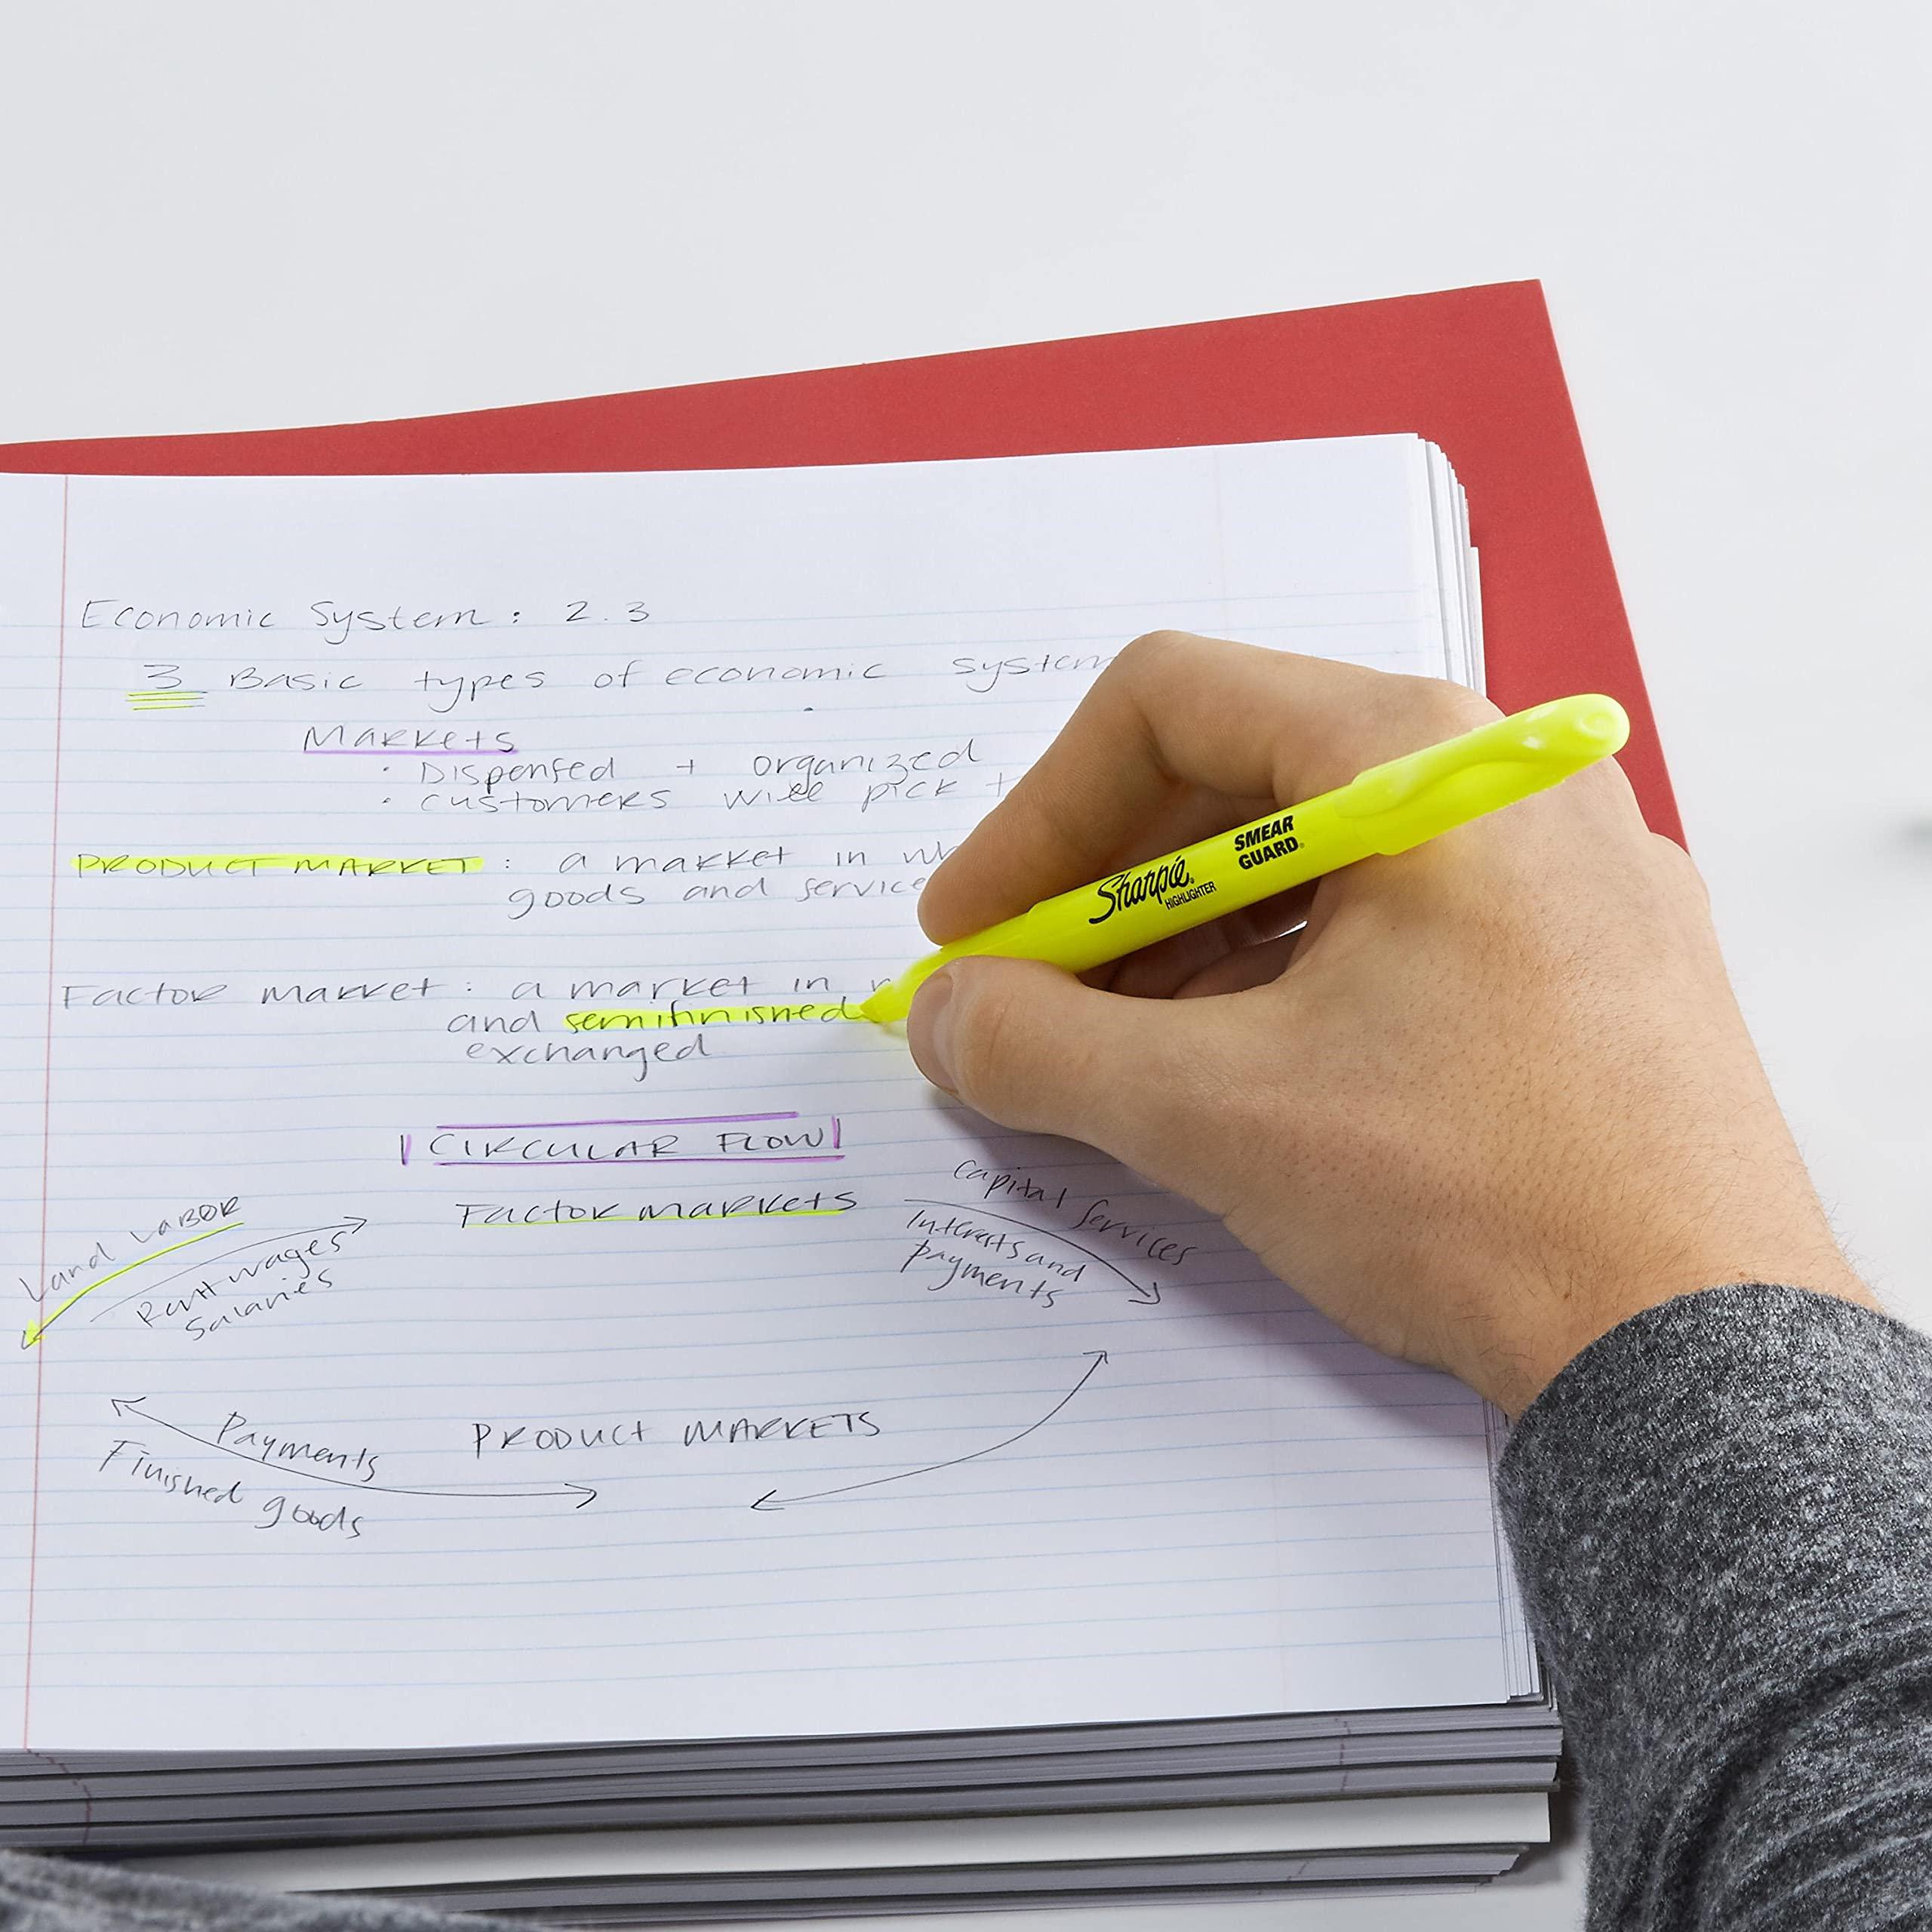 Economic System : 2.3
3 Basic types of economic system
Markets
· Dispensed + organized
· customers will pick
PRODUCT MARKET : a market in
goods and service
Factor market : a market in
and semifinished
exchanged
CIRCULAR FLOW
Factor markets
Land Labor
Rent wages
salaries
capital services
Interests and
payments
Payments
Finished goods
PRODUCT MARKETS
Sharpie
HIGHLIGHTER
SMEAR
GUARD